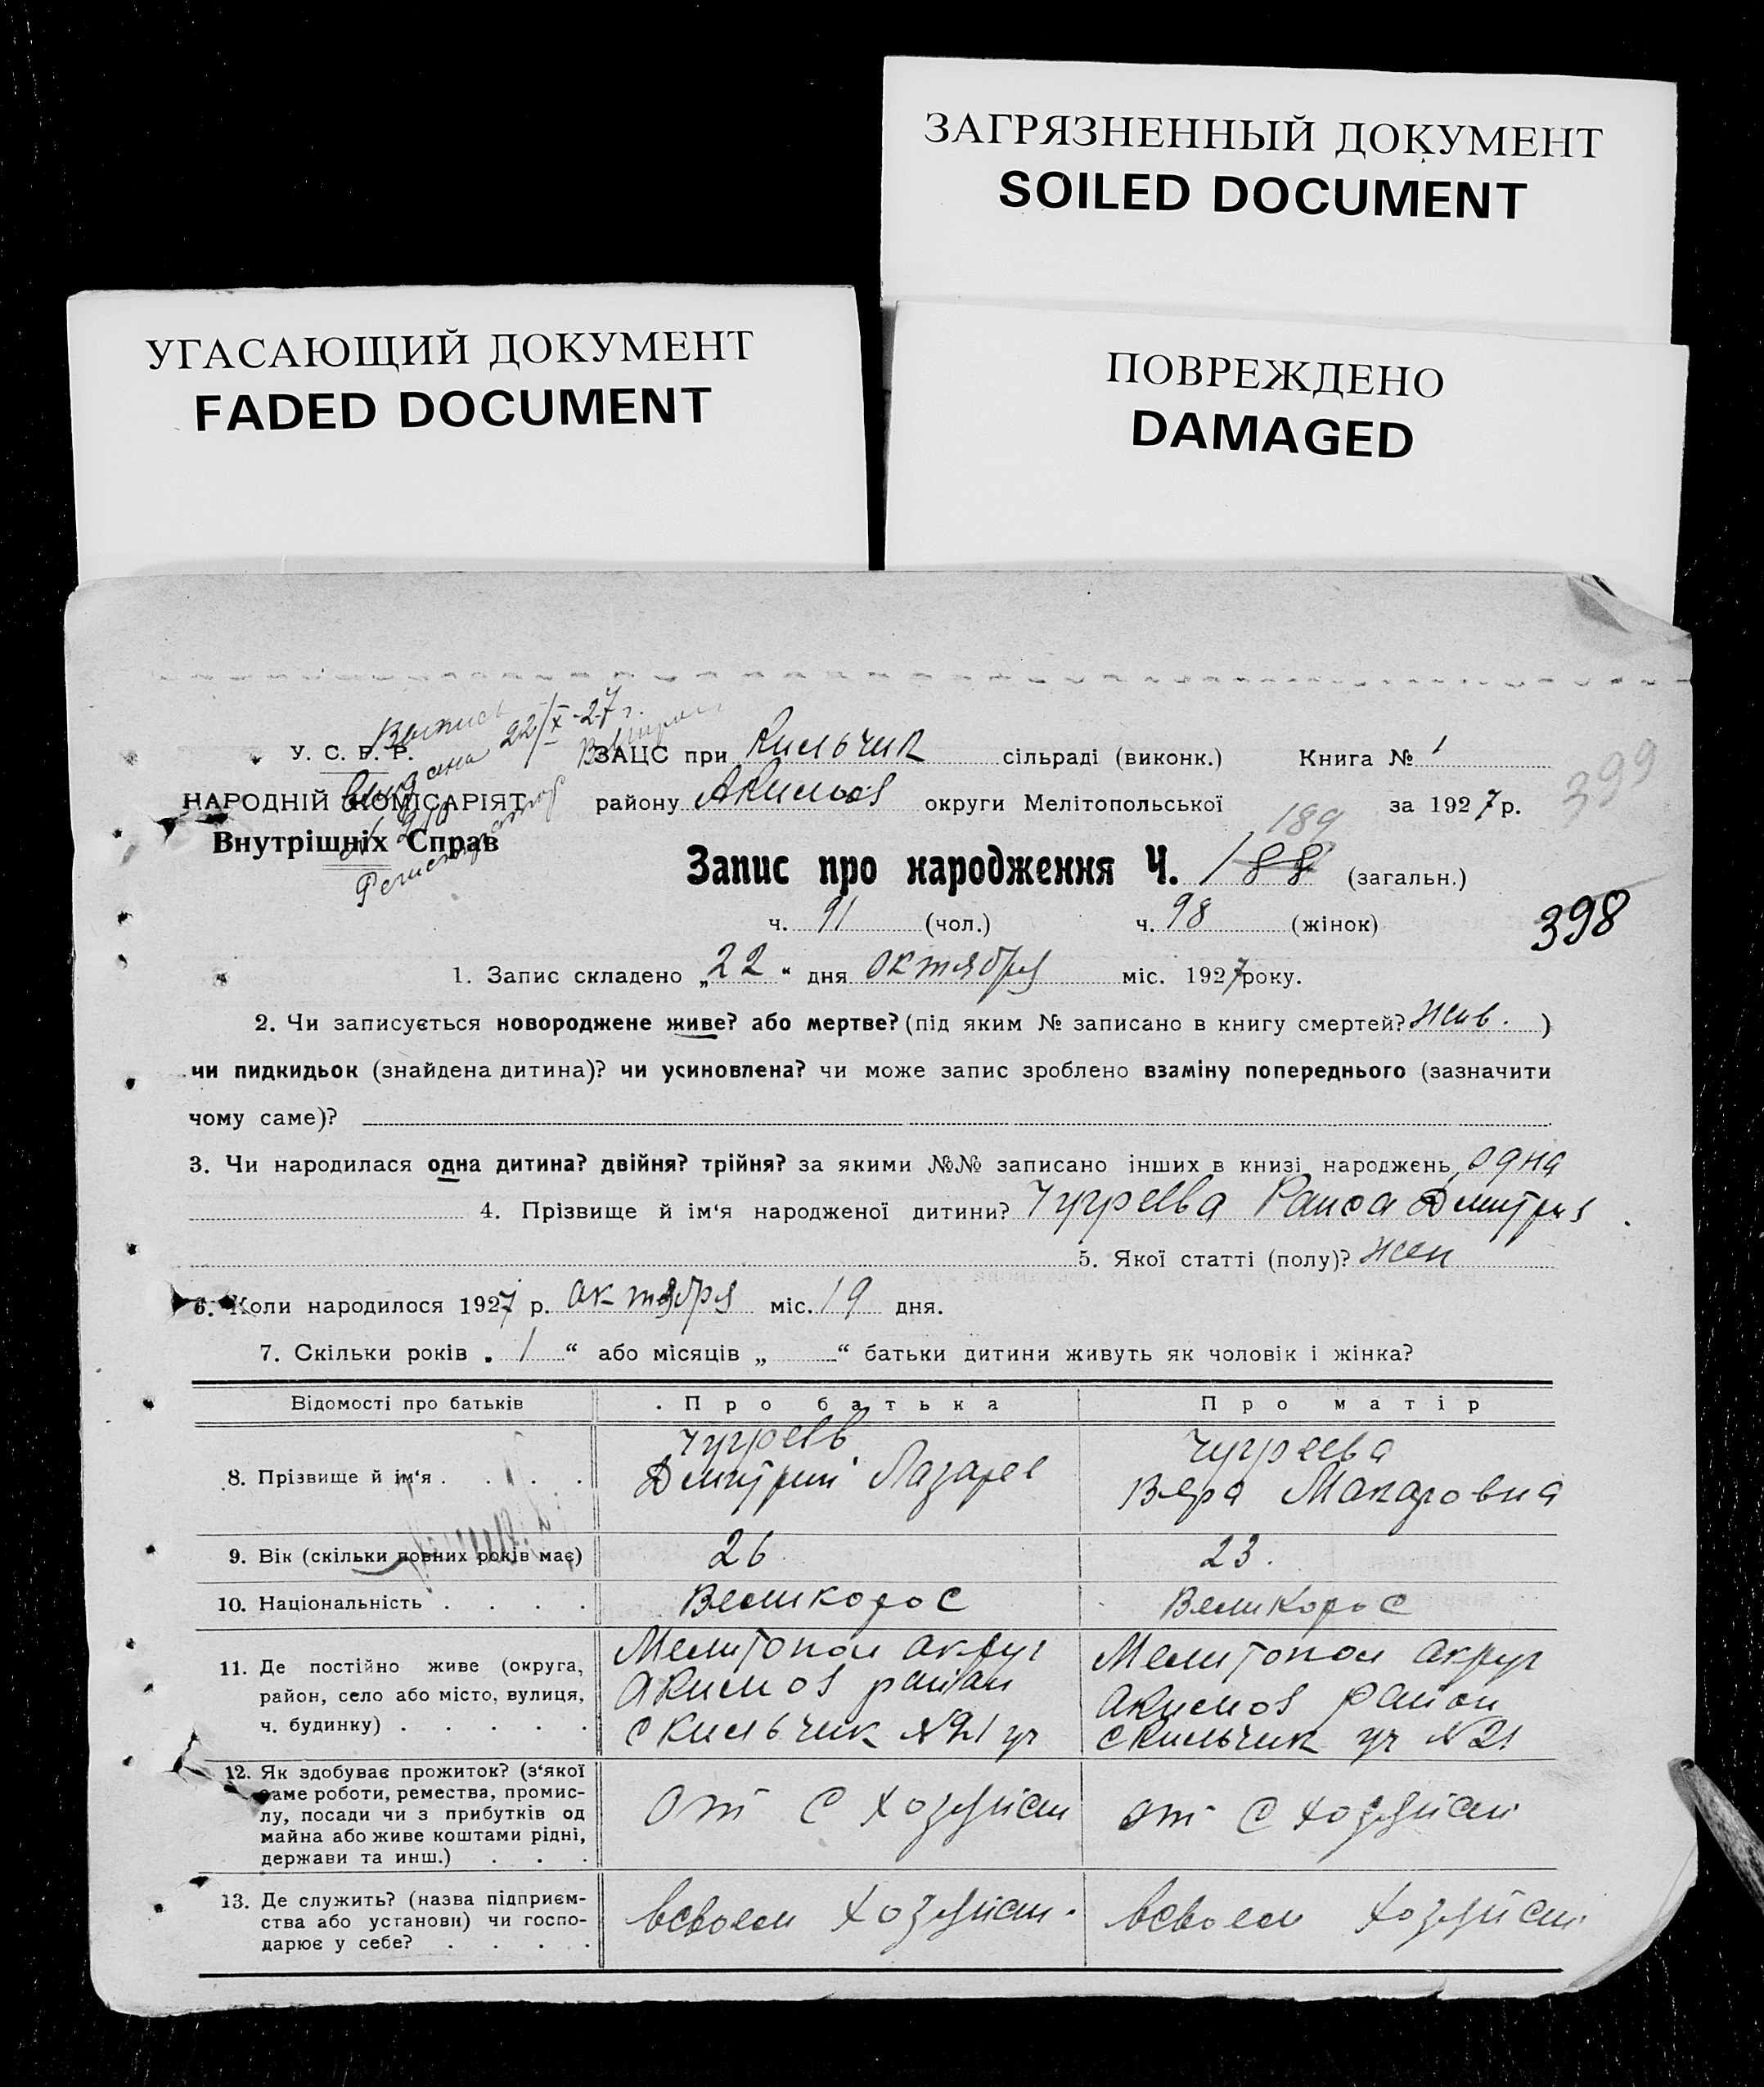 ЗАГРЯЗНЕННЫЙ ДОКУМЕНТ
SOILED DOCUMENT
УГАСАЮЩИЙ ДОКУМЕНТ
FADED DOCUMENT
ПОВРЕЖДЕНО
DAMAGED
Выпись
выдана 22/X-27 г.
У. С. Р. Р.
НАРОДНІЙ КОМІСАРІЯТ
Внутрішніх Справ
ЗАЦС при Кильчик сільраді (виконк.) Книга № 1
району Акимов округи Мелітопольської за 1927 р.
399
189
Запис про народження Ч. 188 (загальн.)
ч. 91 (чол.) ч. 98 (жінок)
398
1. Запис складено „22“ дня октября міс. 1927 року.
2. Чи записується новороджене живе? або мертве? (під яким № записано в книгу смертей? жив. )
чи пидкидьок (знайдена дитина)? чи усиновлена? чи може запис зроблено взаміну попереднього (зазначити
чому саме)?
3. Чи народилася одна дитина? двійня? трійня? за якими №№ записано інших в книзі народжень, одна
4. Прізвище й ім‘я народженої дитини? Чугреева Раиса Дмитрия
5. Якої статті (полу)? жен
6. Коли народилося 1927 р. октября міс. 19 дня.
7. Скільки років „ 1 “ або місяців „ “ батьки дитини живуть як чоловік і жінка?
Відомості про батьків Про батька Про матір
8. Прізвище й ім‘я Чугреев Дмитрий Лазарев Чугреева Вера Макаровна
9. Вік (скільки повних років має) 26 23.
10. Національність Великорос Великорос
11. Де постійно живе (округа,
район, село або місто, вулиця,
ч. будинку)
Мелитопол округ
Акимов район
с Кильчик №21 уч
Мелитопол округ
Акимов район
с Кильчик уч №21
12. Як здобуває прожиток? (з‘якої
саме роботи, ремества, промис-
лу, посади чи з прибутків од
майна або живе коштами рідні,
держави та инш.)
от с хозяйств
от с хозяйств
13. Де служить? (назва підприєм-
ства або установи) чи госпо-
дарює у себе?
всвоем хозяйств.
всвоем хозяйств